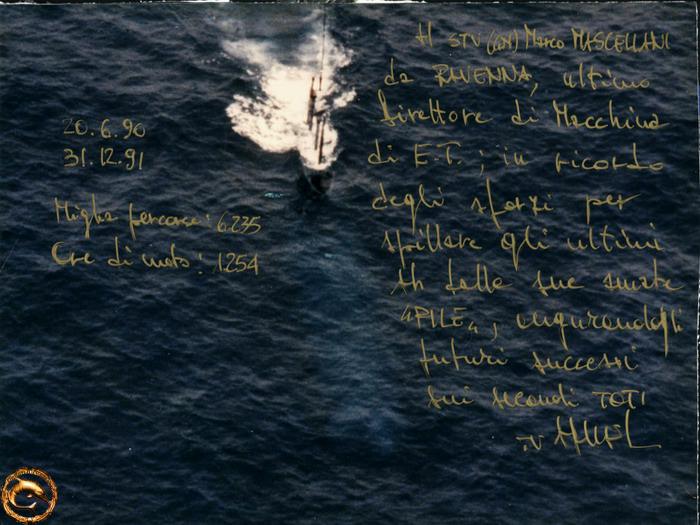 20.6.90
31.12.91
Miglia percorse: 6.235
Ore di moto: 1254
Al STV (GN) Marco MASCELLANI
da RAVENNA, ultimo
Direttore di Macchina
di E.T.; in ricordo
degli sforzi per
spillare gli ultimi
Ah dalle sue amate
"PILE", augurandogli
futuri successi
sui secondi TOTI